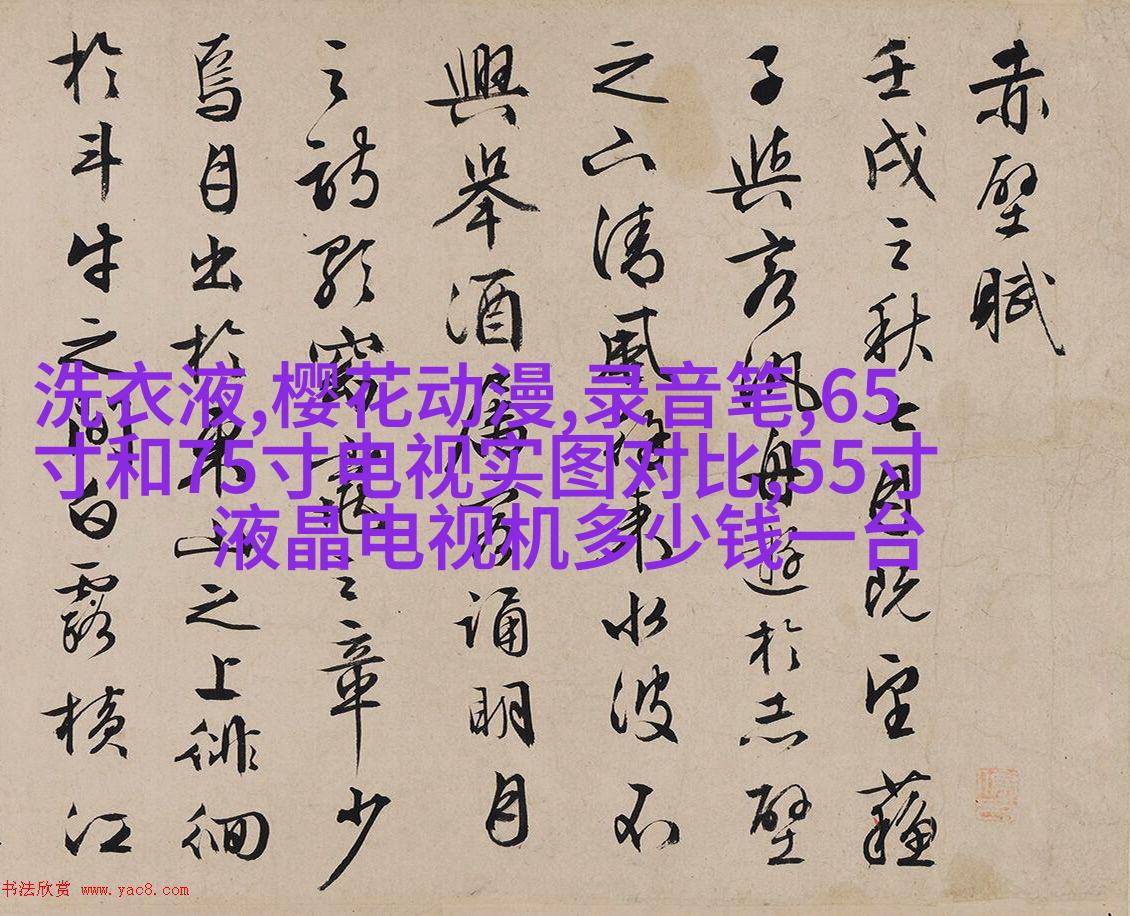 赤壁賦
壬戌之秋七月既望蘇
子與客汎舟遊於赤壁
之下清風徐來水波不
興舉酒屬客誦明月
之詩歌窈窕之章少
焉月出於東山之上徘徊
於斗牛之間白露橫江
洗衣液,樱花动漫,录音笔,65
寸和75寸电视实图对比,55寸
液晶电视机多少钱一台
书法欣赏 www.yac8.com